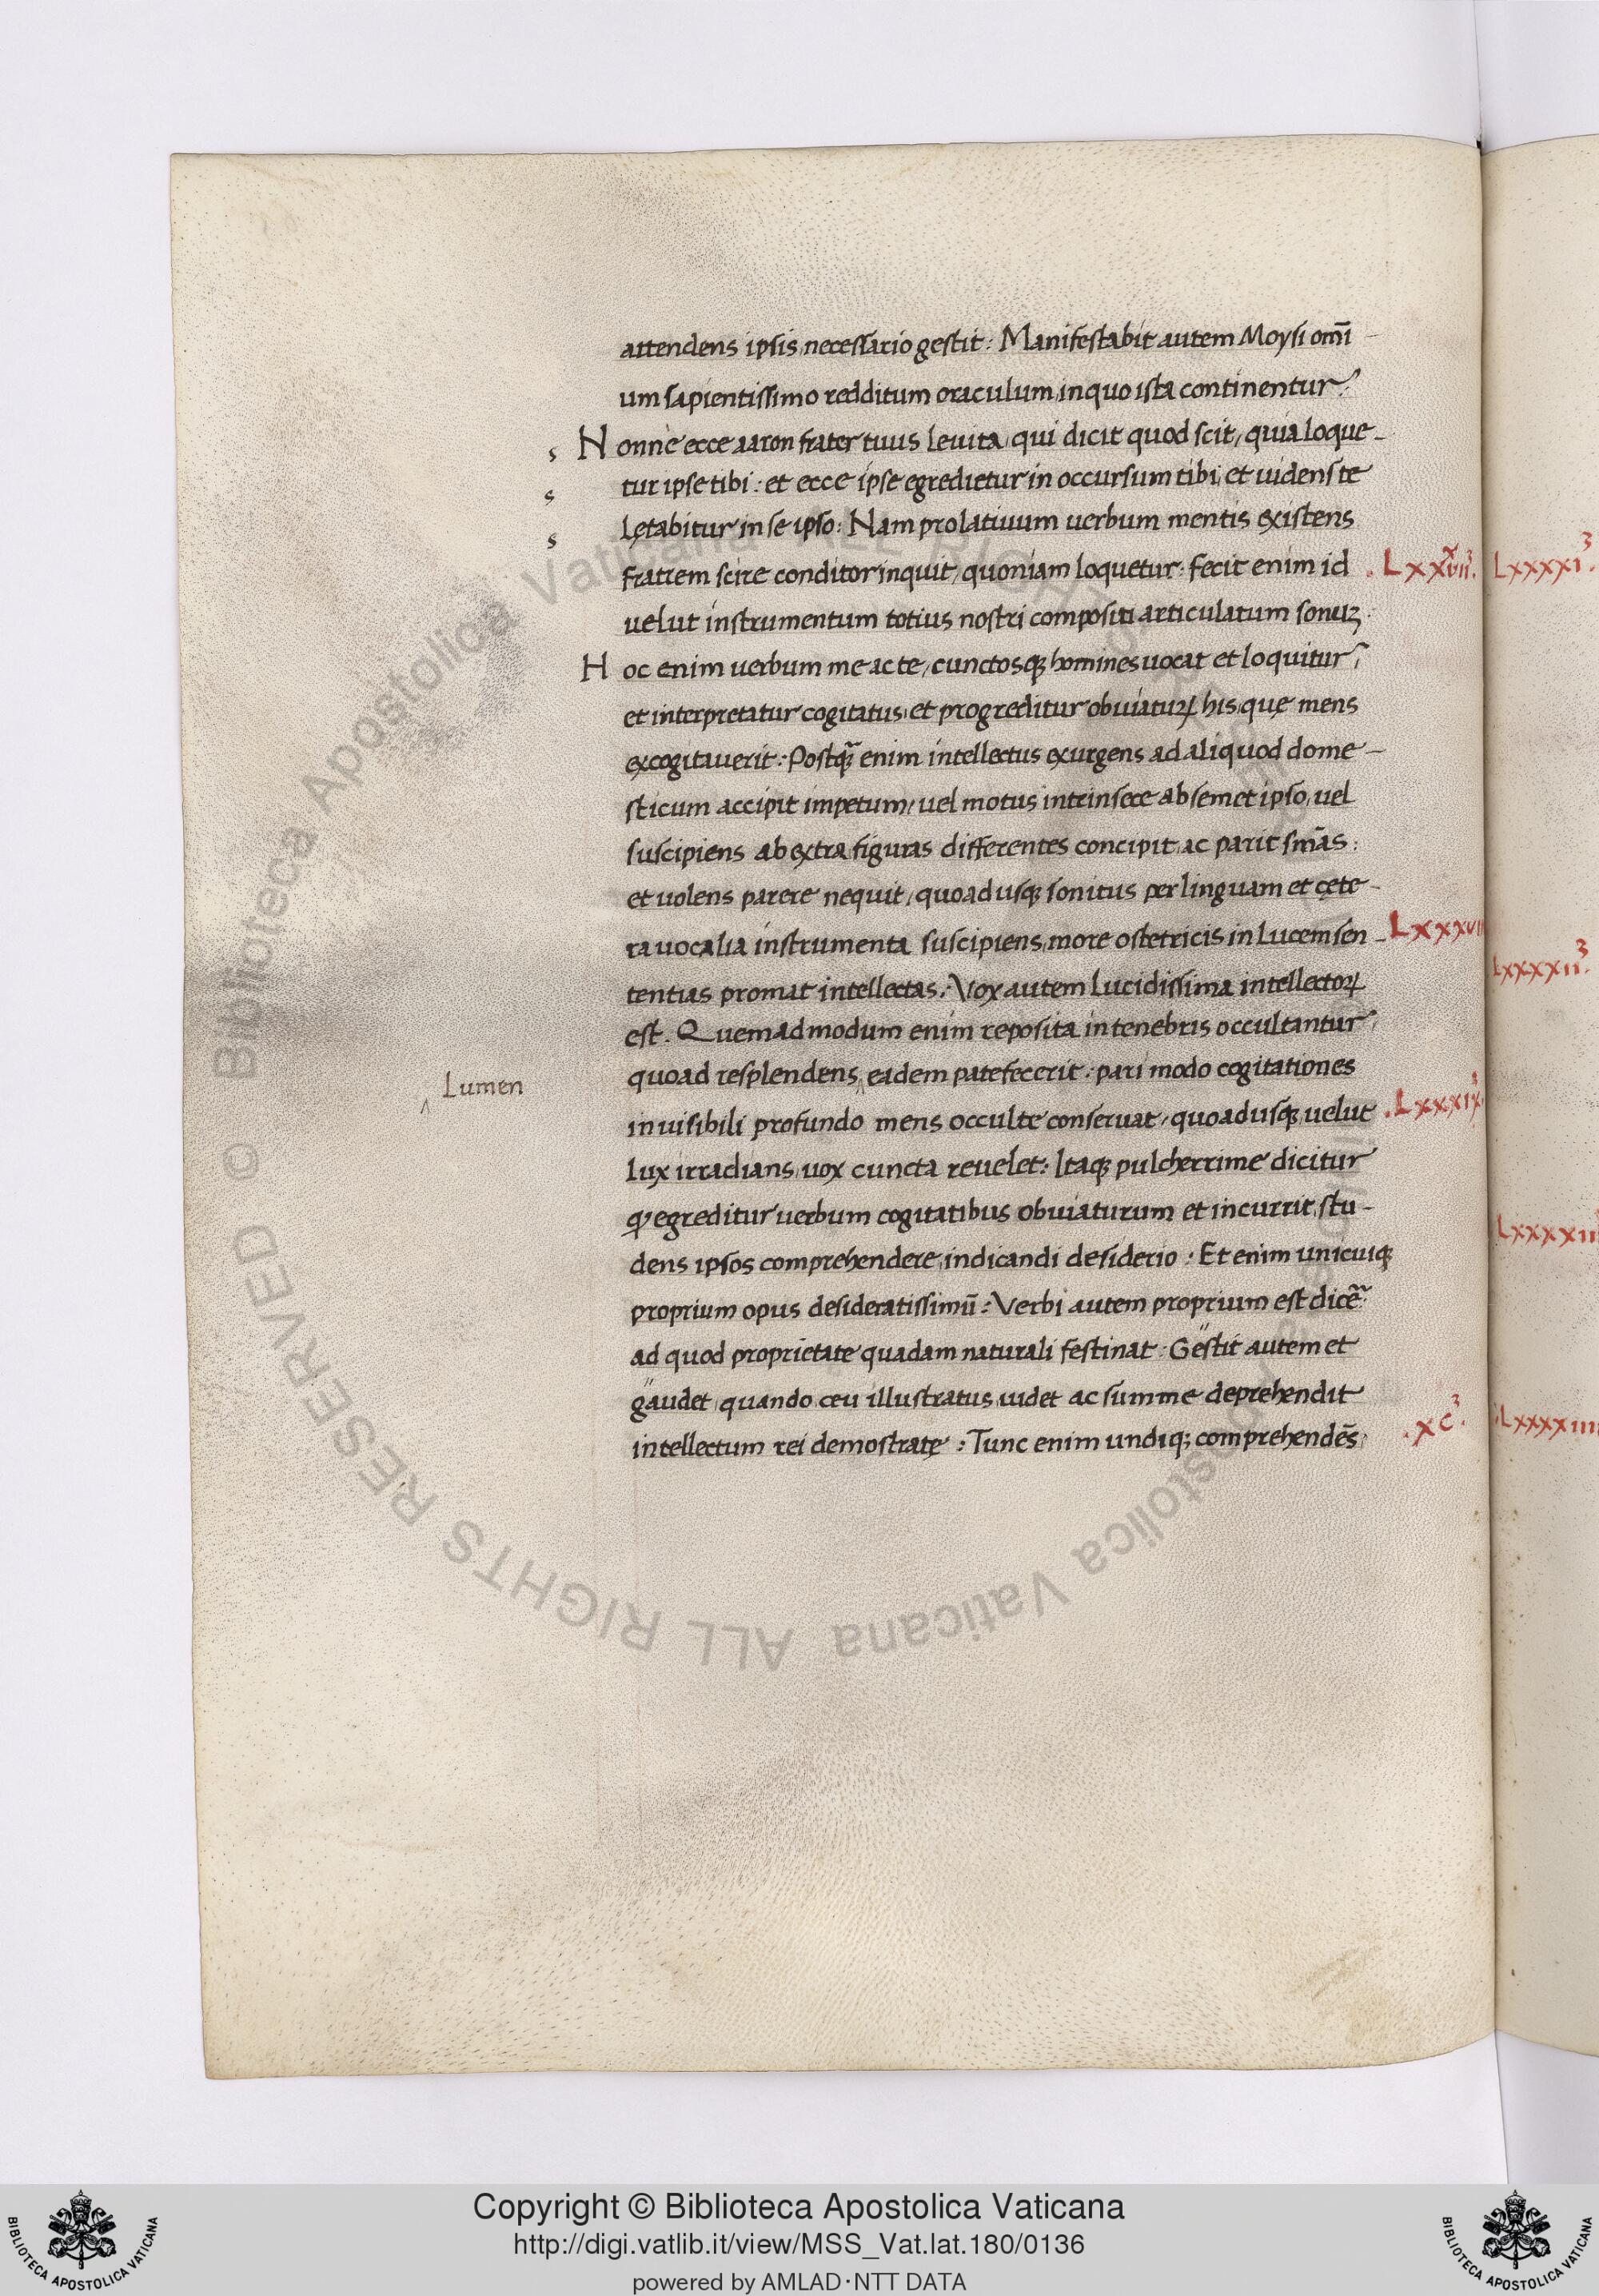 attendens ipsis necessario gestit: Manifestabit autem Moysi om̄i
um sapientissimo redditum oraculum in quo ista continentur:
Nonne ecce aaron frater tuus leuita qui dicit quod scit, quia loque-
tur ipse tibi: et ecce ipse egredietur in occursum tibi, et uidens te
lętabitur in se ipso: Nam prolatiuum uerbum mentis existens
fratrem scire conditor inquit, quoniam loquetur: fecit enim id
uelut instrumentum totius nostri compositi articulatum sonuꝫ:
Hoc enim uerbum me ac te, cunctosqꝫ homines uocat et loquitur,
et interpretatur cogitatus, et progreditur obuiaturꝝ his, quę mens
excogitauerit: Postqꝫ̃ enim intellectus exurgens ad aliquod dome-
sticum accipit impetum, uel motus intrinsece ab semet ipso, uel
suscipiens ab extra figuras differentes concipit, ac parit sm̄as:
et uolens parere nequit, quoadusqꝫ sonitus per linguam et cęte-
ra uocalia instrumenta suscipiens, more ostetricis in lucem sen-
tentias promat intellectas. Vox autem lucidissima intellectoꝝ
est. Quemadmodum enim reposita in tenebris occultantur,
quoad resplendens ‸ eadem patefecerit: pari modo cogitationes
inuisibili profundo mens occulte conseruat, quoadusqꝫ uelut
lux irradians, uox cuncta reuelet: Itaqꝫ pulcherrime dicitur
ꝙ egreditur uerbum cogitatibus obuiaturum et incurrit, stu-
dens ipsos comprehendere, indicandi desiderio: Et enim unicuiqꝫ
proprium opus desideratissimū: Verbi autem proprium est dicẽ:
ad quod proprietate quadam naturali festinat: Gestit autem et
gaudet, quando ceu illustratus, uidet ac summe deprehendit
intellectum rei demostratę: Tunc enim undiq; comprehendēs,
s
s
s
‸ Lumen
. Lxxxvii.
Lxxxvii
. Lxxxix
. xc.
Lxxxxi.
Lxxxxii.
Lxxxxii
Lxxxxiiii
© Biblioteca Apostolica Vaticana ALL RIGHTS RESERVED
Copyright © Biblioteca Apostolica Vaticana
http://digi.vatlib.it/view/MSS_Vat.lat.180/0136
powered by AMLAD·NTT DATA
BIBLIOTECA APOSTOLICA VATICANA
BIBLIOTECA APOSTOLICA VATICANA